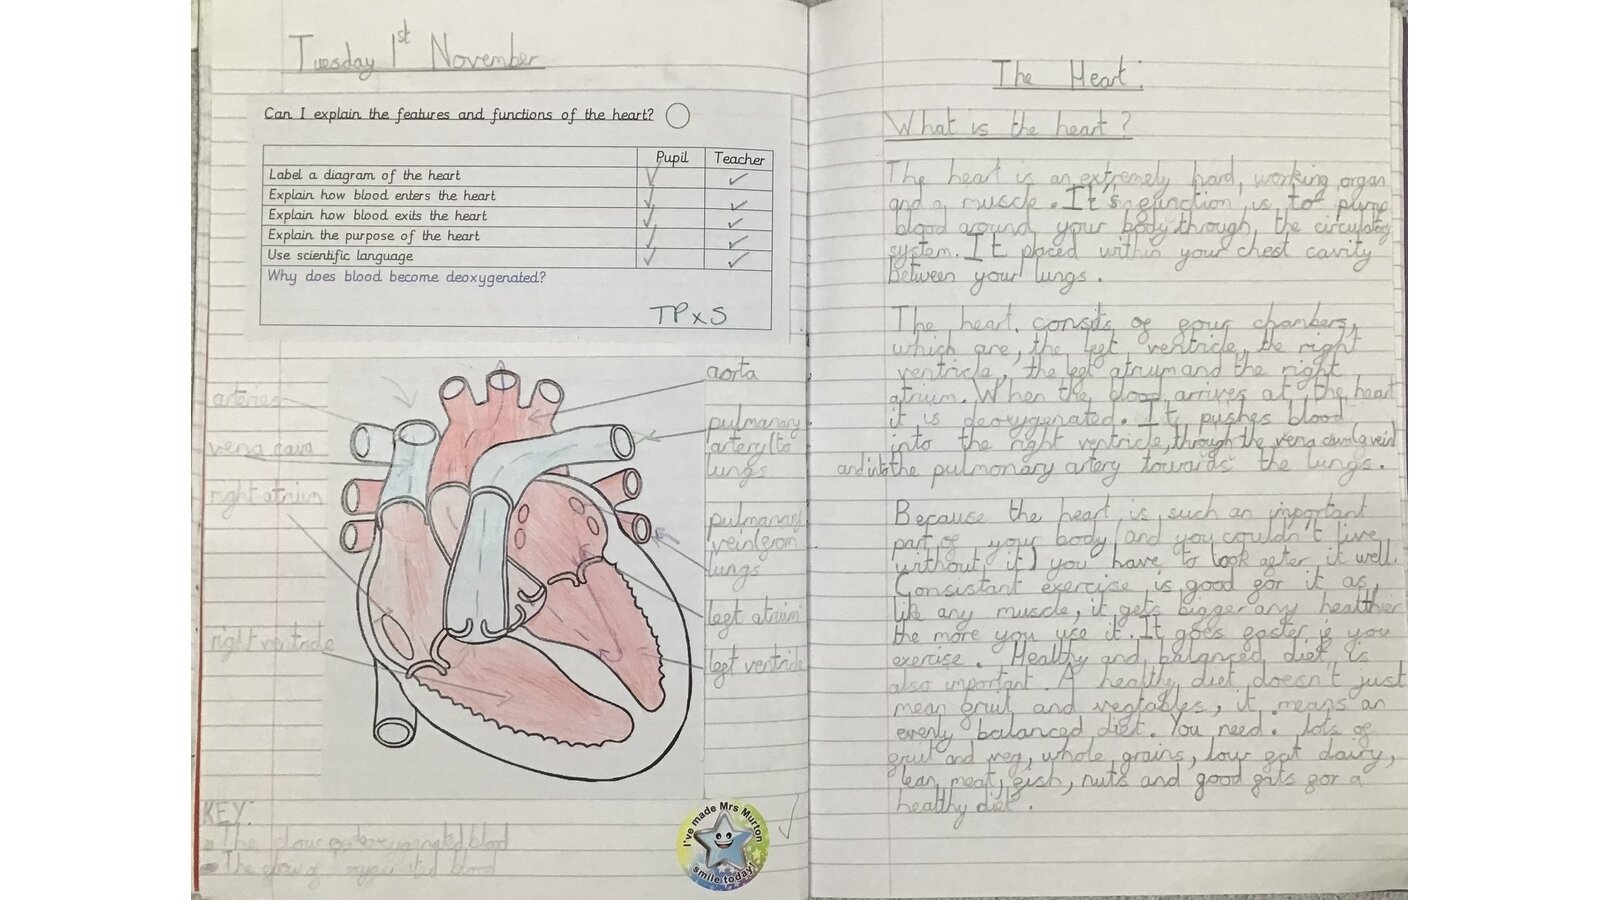 Tuesday 1st November
Can I explain the features and functions of the heart?
Pupil Teacher
Label a diagram of the heart
Explain how blood enters the heart
Explain how blood exits the heart
Explain the purpose of the heart
Use scientific language
Why does blood become deoxygenated?
TPxS
aorta
arteries
pulmanary
artery(to
lungs
vena cava
right atrium
pulmanary
vein(from
lungs
left atrium
right ventricle
left ventricle
KEY:
The flow of deoxygenated blood
The flow of oxygenated blood
I've made Mrs Murton
smile today!
The Heart.
What is the heart?
The heart is an extremely hard, working organ
and a muscle. It's function is to pump
blood around your body through, the circulatory
system. It placed within your chest cavity
between your lungs.
The heart consits of four chambers,
which are, the left ventricle, the right
ventricle, the left atrium and the right
atrium. When the blood arrives at the heart
it is deoxygenated. It pushes blood
into the right ventricle, through the vena cava(a vein)
and into the pulmonary artery towards the lungs.
Because the heart is such an important
part of your body (and you couldn't live
without it) you have to look after it well.
Consistant exercise is good for it as,
like any muscle, it gets bigger any healthier
the more you use it. It goes faster if you
exercise. Healthy and balanced diet is
also important. A healthy diet doesn't just
mean fruit and vegtables, it means an
evenly balanced diet. You need. lots of
fruit and veg, whole grains, low fat dairy,
lean meat, fish, nuts and good fats for a
healthy diet.